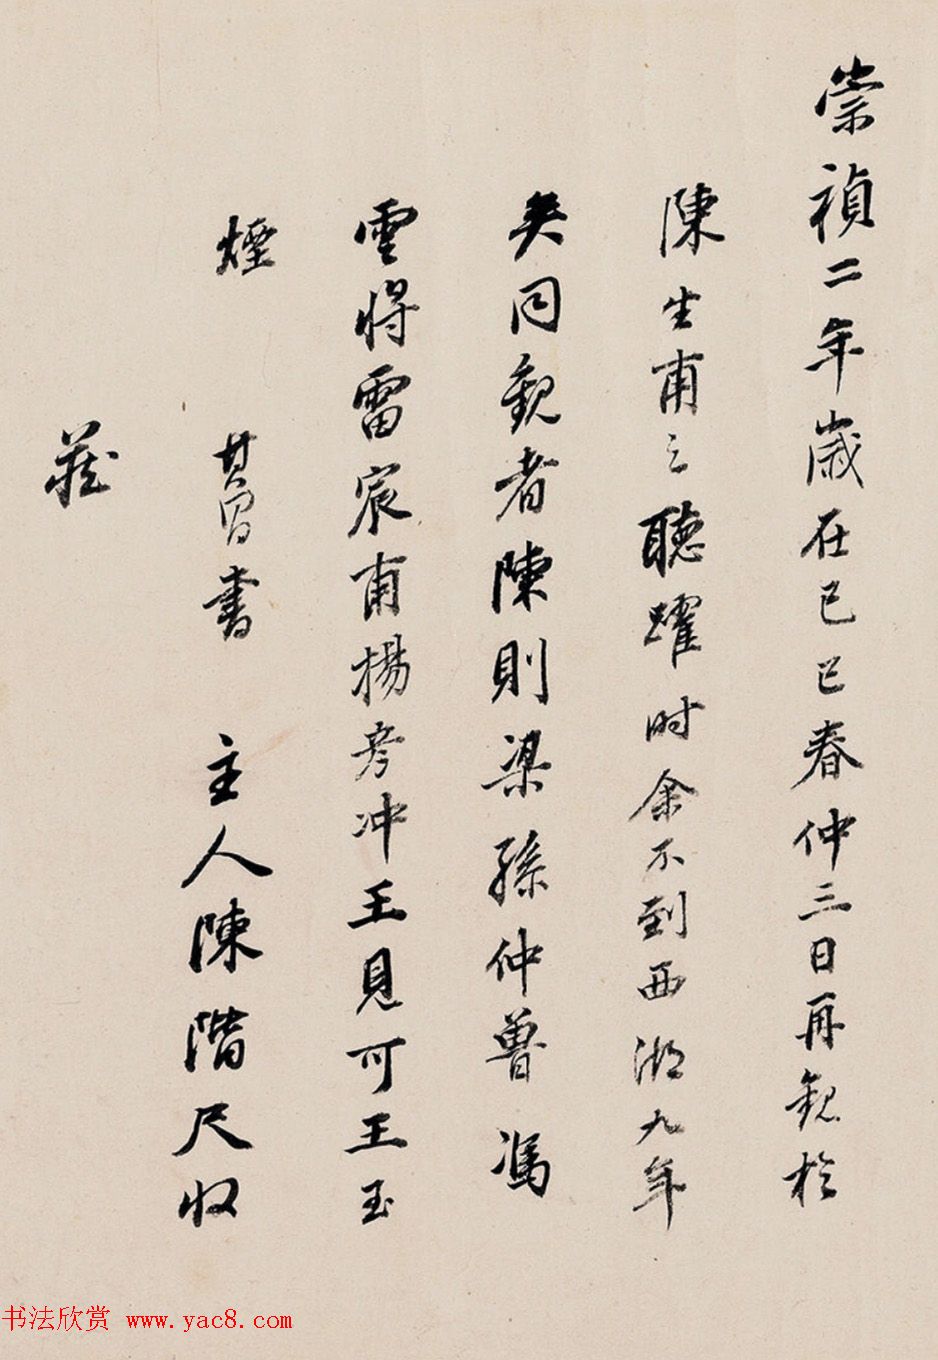 崇禎二年歲在己巳春仲三日再觀於
陳生甫之聽躍时余不到西湖九年
矣同觀者陳則梁孫仲魯馮
雲將雷宸甫楊彥冲王見可王玉
煙 其昌書 主人陳階尺收
藏
书法欣赏 www.yac8.com